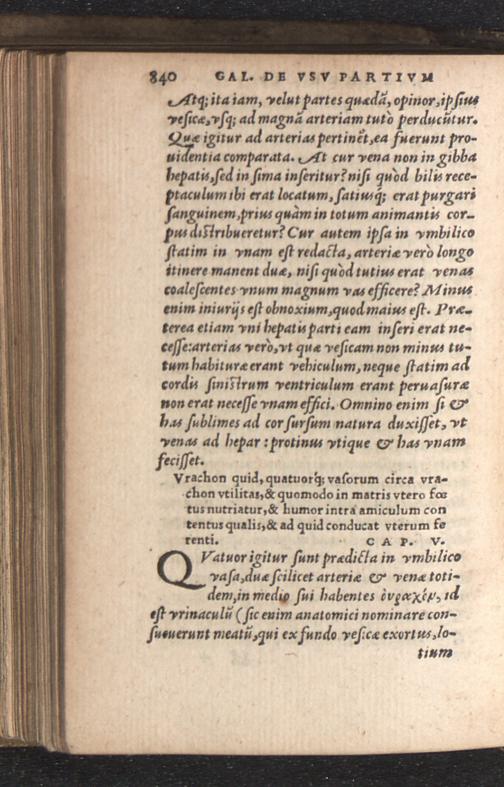 840 GAL. DE VSV PARTIVM
Atq; ita iam, velut partes quædã, opinor, ipsius
vesicæ, vsq; ad magnã arteriam tutò perducũtur.
Quæ igitur ad arterias pertinẽt, ea fuerunt pro-
uidentia comparata. At cur vena non in gibba
hepatis, sed in sima inseritur? nisi quòd bilis rece-
ptaculum ibi erat locatum, satiusq́; erat purgari
sanguinem, prius quàm in totum animantis cor-
pus distribueretur? Cur autem ipsa in vmbilico
statim in vnam est redacta, arteriæ verò longo
itinere manent duæ, nisi quòd tutius erat venas
coalescentes vnum magnum vas efficere? Minus
enim iniurijs est obnoxium, quod maius est. Præ-
terea etiam vni hepatis parti eam inseri erat ne-
cesse: arterias verò, vt quæ vesicam non minus tu-
tum habituræ erant vehiculum, neque statim ad
cordis sinistrum ventriculum erant peruasuræ
non erat necesse vnam effici. Omnino enim si &
has sublimes ad cor sursum natura duxisset, vt
venas ad hepar: protinus vtique & has vnam
fecisset.
Vrachon quid, quatuorq́; vasorum circa vra-
chon vtilitas, & quomodo in matris vtero fœ
tus nutriatur, & humor intra amiculum con
tentus qualis, & ad quid conducat vterum fe
renti. CAP. V.
QVatuor igitur sunt prædicta in vmbilico
vasa, duæ scilicet arteriæ & venæ toti-
dem, in medio sui habentes οὐραχόν, id
est vrinaculũ (sic enim anatomici nominare con-
sueuerunt meatũ, qui ex fundo vesicæ exortus, lo-
tium